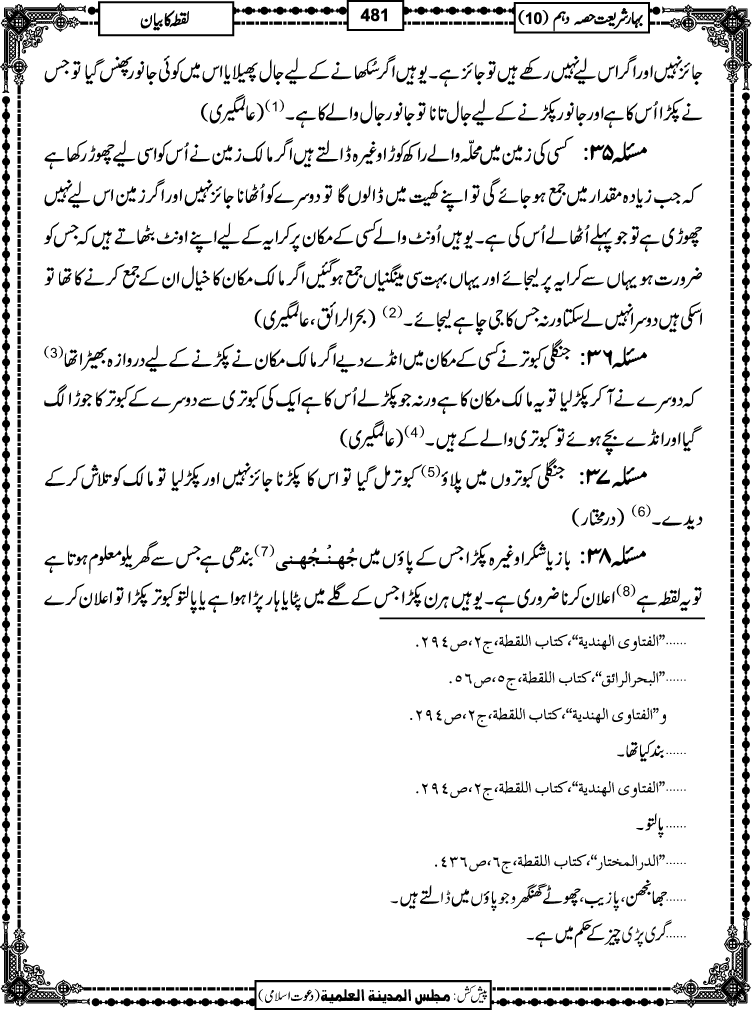 بہارِ شریعت حصہ دہم (10)
481
لقطہ کا بیان
جائز نہیں اور اگر اس لیے نہیں رکھے ہیں تو جائز ہے۔ یوہیں اگر سُکھانے کے لیے جال پھیلایا اس میں کوئی جانور پھنس گیا تو جس
نے پکڑا اُس کا ہے اور جانور پکڑنے کے لیے جال تانا تو جانور جال والے کا ہے۔(1) (عالمگیری)
مسئلہ ۳۵: کسی کی زمین میں محلّہ والے راکھ کوڑا وغیرہ ڈالتے ہیں اگر مالک زمین نے اُس کو اسی لیے چھوڑ رکھا ہے
کہ جب زیادہ مقدار میں جمع ہو جائے گی تو اپنے کھیت میں ڈالوں گا تو دوسرے کو اُٹھانا جائز نہیں اور اگر زمین اس لیے نہیں
چھوڑی ہے تو جو پہلے اُٹھا لے اُس کی ہے۔ یوہیں اُونٹ والے کسی کے مکان پر کرایہ کے لیے اپنے اونٹ بٹھاتے ہیں کہ جس کو
ضرورت ہو یہاں سے کرایہ پر لیجائے اور یہاں بہت سی مینگنیاں جمع ہو گئیں اگر مالک مکان کا خیال ان کے جمع کرنے کا تھا تو
اسکی ہیں دوسرا نہیں لے سکتا ورنہ جس کا جی چاہے لیجائے۔(2) (بحر الرائق، عالمگیری)
مسئلہ ۳۶: جنگلی کبوتر نے کسی کے مکان میں انڈے دیے اگر مالک مکان نے پکڑنے کے لیے دروازہ بھیڑا تھا(3)
کہ دوسرے نے آکر پکڑ لیا تو یہ مالک مکان کا ہے ورنہ جو پکڑ لے اُس کا ہے ایک کی کبوتری سے دوسرے کے کبوتر کا جوڑا لگ
گیا اور انڈے بچے ہوئے تو کبوتری والے کے ہیں۔(4) (عالمگیری)
مسئلہ ۳۷: جنگلی کبوتروں میں پلاؤ(5) کبوتر مل گیا تو اس کا پکڑنا جائز نہیں اور پکڑ لیا تو مالک کو تلاش کر کے
دیدے۔(6) (درمختار)
مسئلہ ۳۸: باز یا شکرا وغیرہ پکڑا جس کے پاؤں میں جُھنْجُھنی(7) بندھی ہے جس سے گھریلو معلوم ہوتا ہے
تو یہ لقطہ ہے(8) اعلان کرنا ضروری ہے۔ یوہیں ہرن پکڑا جس کے گلے میں پٹا یا ہار پڑا ہوا ہے یا پالتو کبوتر پکڑا تو اعلان کرے
......”الفتاوى الهندية“، كتاب اللقطة، ج۲، ص۲۹٤.
......”البحرالرائق“، كتاب اللقطة، ج٥، ص٥٦.
و”الفتاوى الهندية“، كتاب اللقطة، ج۲، ص۲۹٤.
......بند کیا تھا۔
......”الفتاوى الهندية“، كتاب اللقطة، ج۲، ص۲۹٤.
......پالتو۔
......”الدرالمختار“، كتاب اللقطة، ج٦، ص٤٣٦.
......جھانجھن، پازیب، چھوٹے گھنگھرو جو پاؤں میں ڈالتے ہیں۔
......گری پڑی چیز کے حکم میں ہے۔
پیش کش: مجلس المدينة العلمية (دعوت اسلامی)